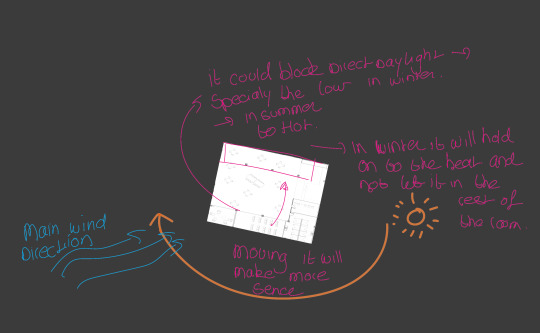 it could block Direct Daylight →
Specialy the low in winter.
→ in summer
to Hot.
→ In winter it will hold
on to the heat and
not let it in the
rest of
the room.
Main wind
Direction
Moving it will
make more
sence